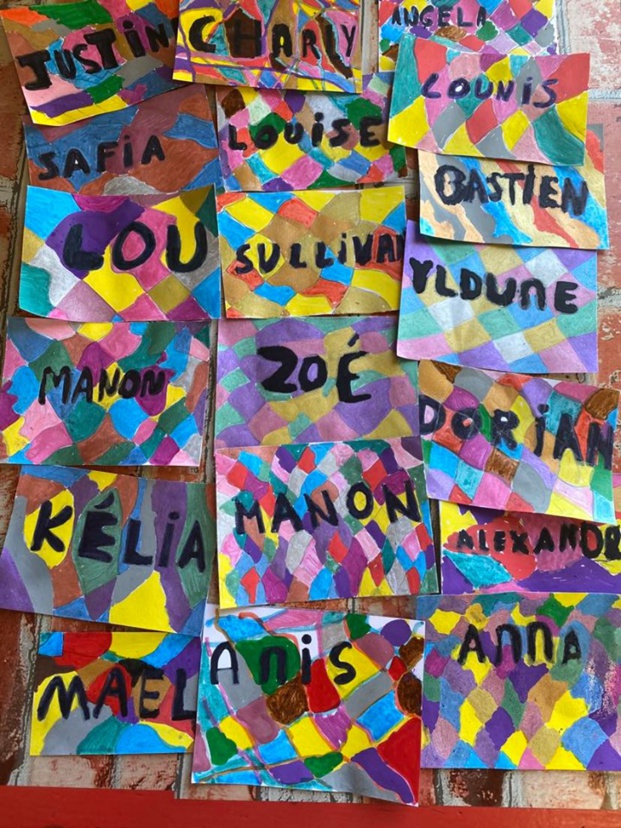 JUSTIN
CHARLY
ANGELA
SAFiA
LOUiSE
LOUNiS
BASTIEN
LOU
SULLiVAN
YLDUNE
MANON
ZOÉ
DORiAN
KÉLiA
MANON
ALEXANDRE
MAEL
AniS
AnnA